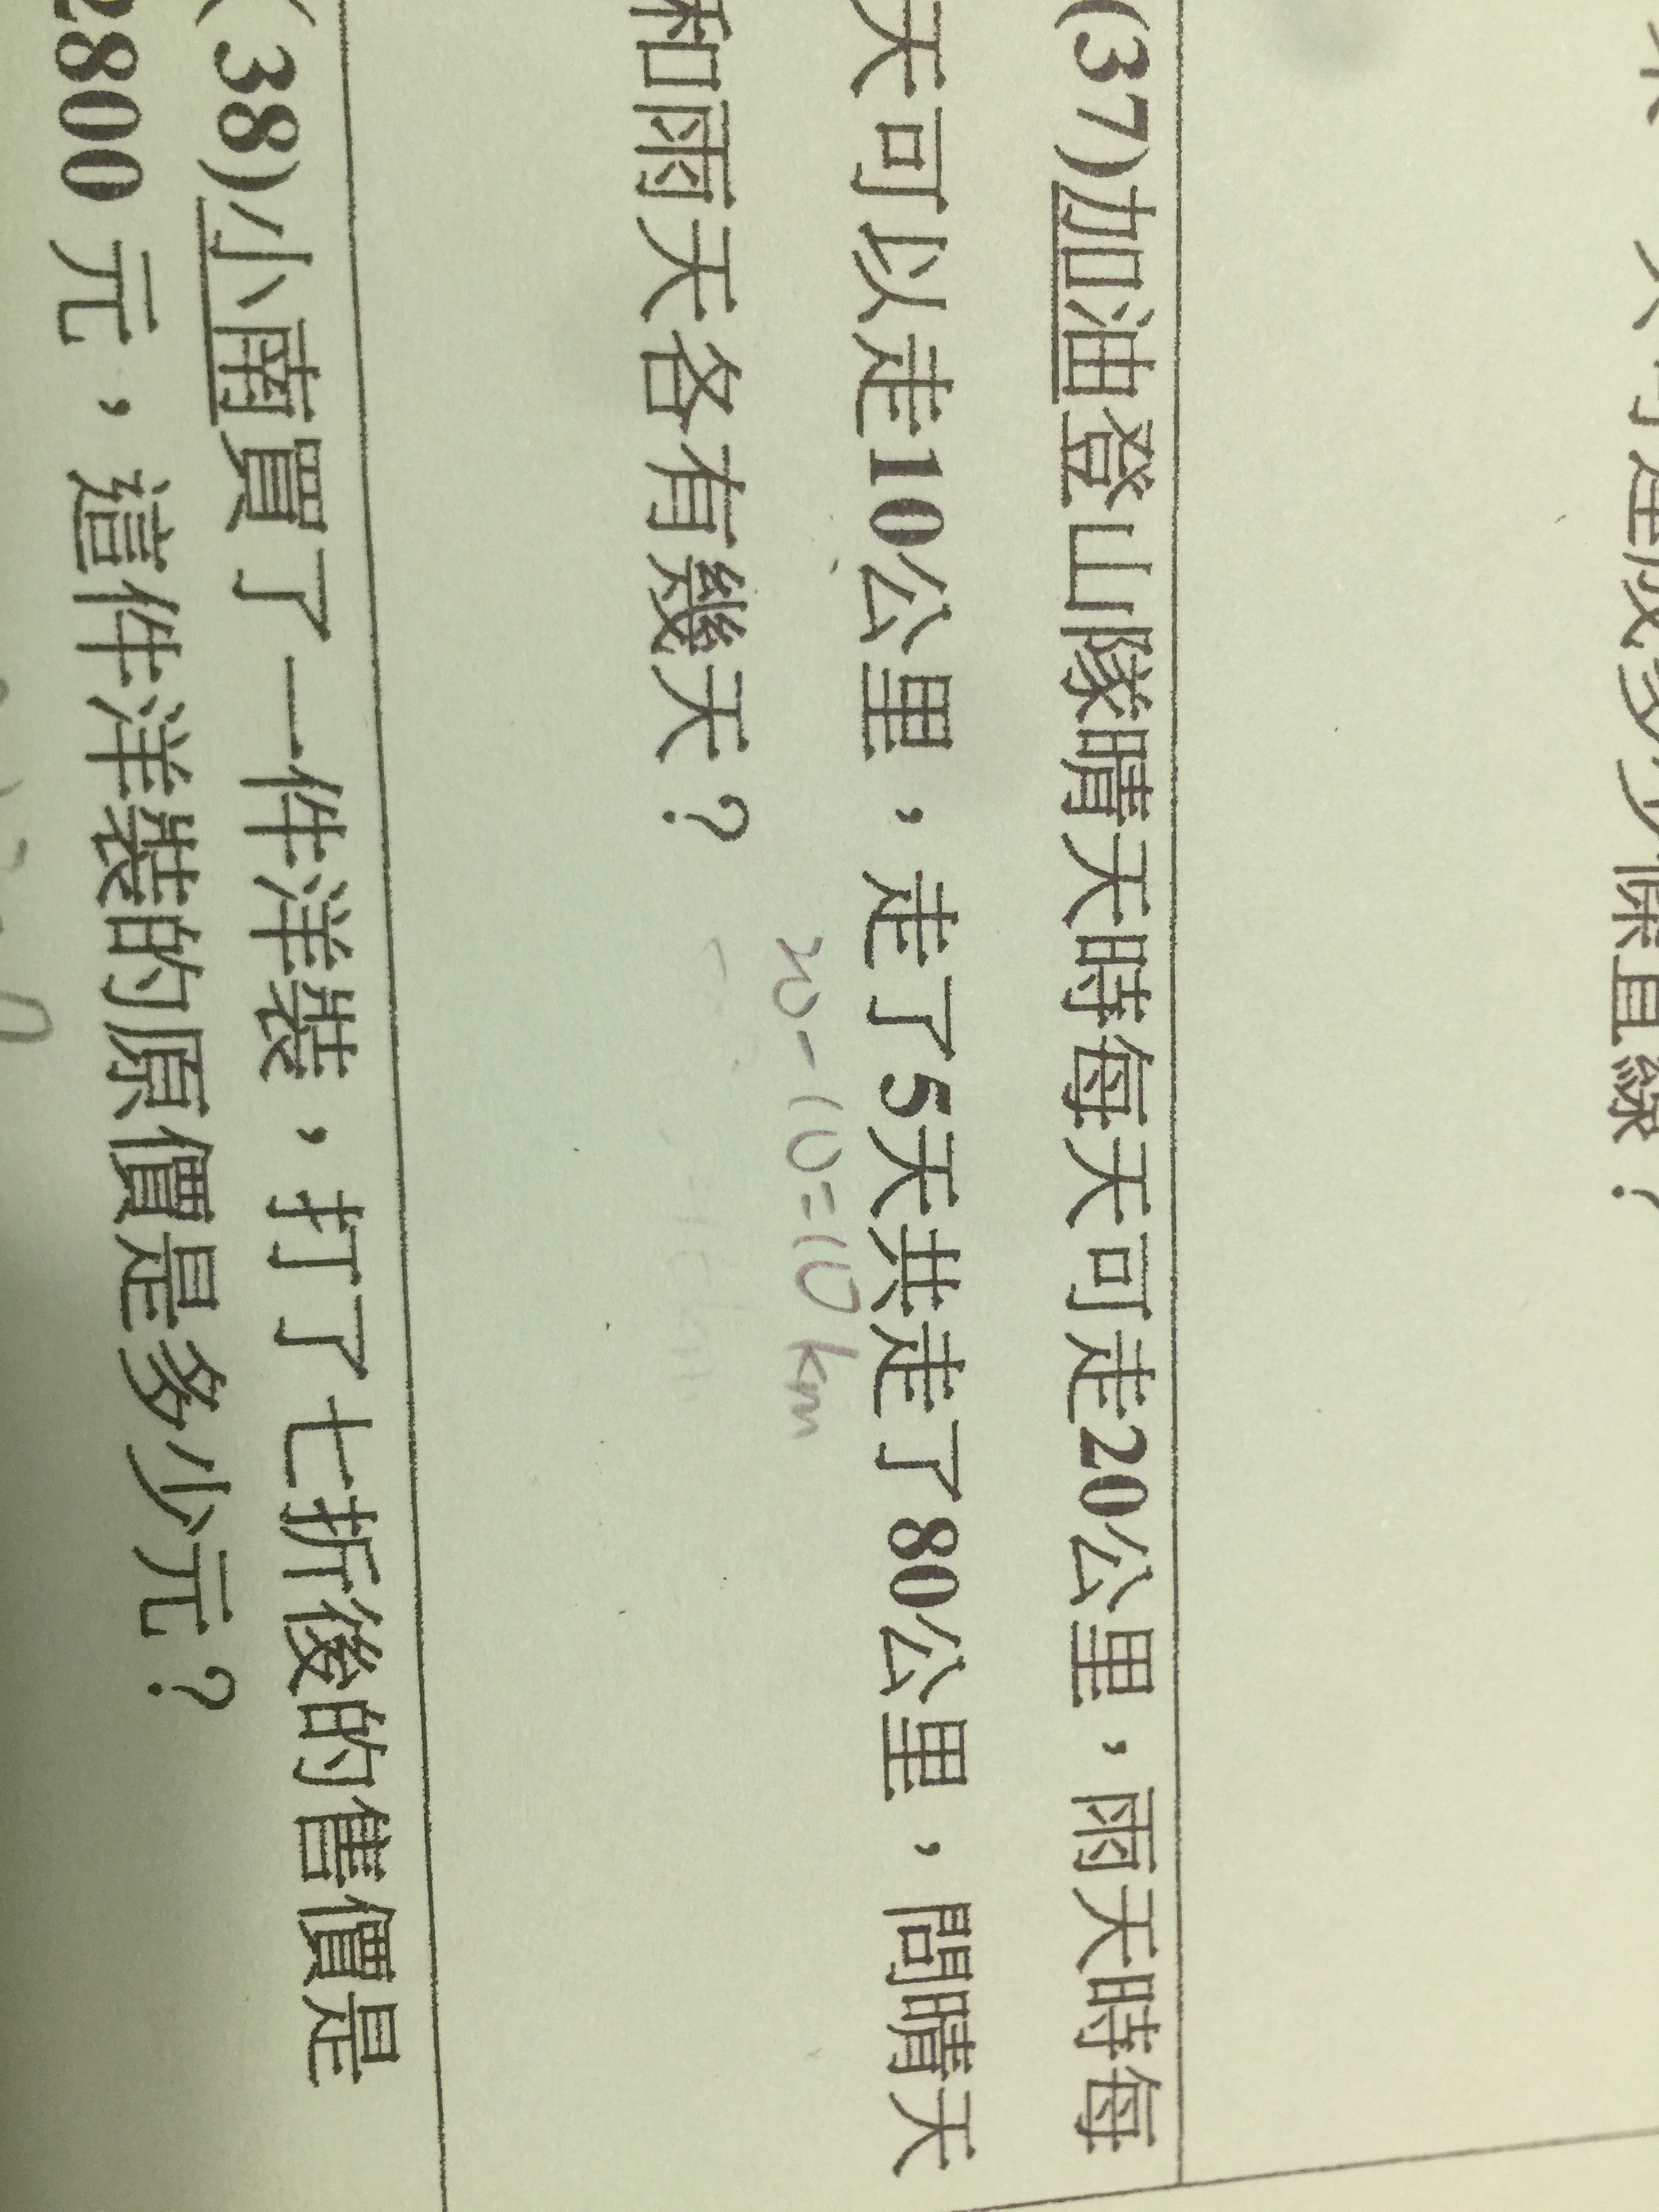 (37)加油登山隊晴天時每天可走20公里，雨天時每
天可以走10公里，走了5天共走了80公里，問晴天
和雨天各有幾天？
20-10=10km
(38)小南買了一件洋裝，打了七折後的售價是
2800元，這件洋裝的原價是多少元？